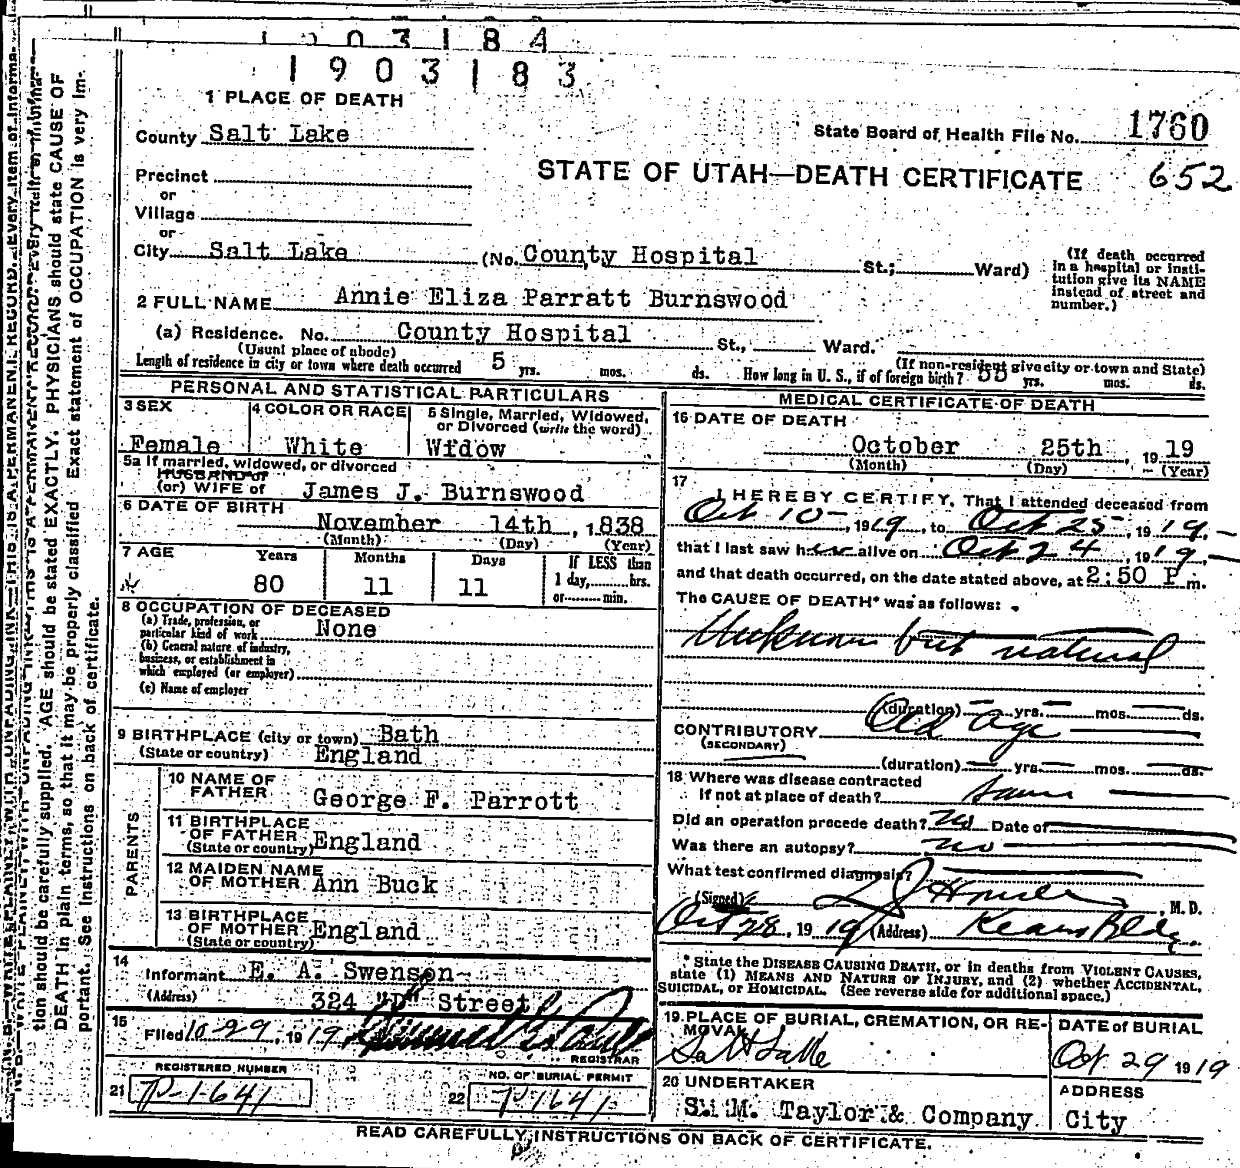 1903184
1903183
1 PLACE OF DEATH
County Salt Lake
State Board of Health File No. 1760
Precinct
STATE OF UTAH—DEATH CERTIFICATE 652
or
Village
or
City Salt Lake (No. County Hospital St.; Ward)
(If death occurred in a hospital or institution give its NAME instead of street and number.)
2 FULL NAME Annie Eliza Parratt Burnswood
(a) Residence. No. County Hospital St., Ward.
(Usual place of abode) (If non-resident give city or town and State)
Length of residence in city or town where death occurred 5 yrs. mos. ds. How long in U. S., if of foreign birth? 55 yrs. mos. ds.
PERSONAL AND STATISTICAL PARTICULARS
3 SEX Female
4 COLOR OR RACE White
5 Single, Married, Widowed, or Divorced (write the word) Widow
5a If married, widowed, or divorced
HUSBAND of
(or) WIFE of James J. Burnswood
6 DATE OF BIRTH
November 14th, 1838
(Month) (Day) (Year)
7 AGE Years Months Days If LESS than
80 11 11 1 day, hrs.
or min.
8 OCCUPATION OF DECEASED
(a) Trade, profession, or
particular kind of work None
(b) General nature of industry,
business, or establishment in
which employed (or employer)
(c) Name of employer
9 BIRTHPLACE (city or town) Bath
(State or country) England
PARENTS
10 NAME OF
FATHER George F. Parrott
11 BIRTHPLACE
OF FATHER
(State or country) England
12 MAIDEN NAME
OF MOTHER Ann Buck
13 BIRTHPLACE
OF MOTHER England
(State or country)
14
Informant E. A. Swenson
(Address) 324 "D" Street
15
Filed 10-29, 1919
REGISTRAR
REGISTERED NUMBER NO. OF BURIAL PERMIT
21 P-1641 22 P1641
MEDICAL CERTIFICATE OF DEATH
16 DATE OF DEATH
October 25th, 1919
(Month) (Day) (Year)
17 I HEREBY CERTIFY, That I attended deceased from
Oct 10, 1919, to Oct 25, 1919
that I last saw her alive on Oct 24, 1919,
and that death occurred, on the date stated above, at 2:50 P m.
The CAUSE OF DEATH* was as follows:
Unknown but natural
(duration) yrs. mos. ds.
CONTRIBUTORY Old Age
(SECONDARY)
(duration) yrs. mos. ds.
18 Where was disease contracted
If not at place of death? same
Did an operation precede death? no Date of
Was there an autopsy? no
What test confirmed diagnosis?
(Signed) , M. D.
Oct 28, 1919 (Address) Kearns Bldg.
* State the DISEASE CAUSING DEATH, or in deaths from VIOLENT CAUSES,
state (1) MEANS AND NATURE OF INJURY, and (2) whether ACCIDENTAL,
SUICIDAL, or HOMICIDAL. (See reverse side for additional space.)
19 PLACE OF BURIAL, CREMATION, OR REMOVAL DATE of BURIAL
Salt Lake Oct 29 1919
20 UNDERTAKER ADDRESS
S. M. Taylor & Company City
READ CAREFULLY INSTRUCTIONS ON BACK OF CERTIFICATE.
tion should be carefully supplied. AGE should be stated EXACTLY. PHYSICIANS should state CAUSE OF
DEATH in plain terms, so that it may be properly classified. Exact statement of OCCUPATION is very im-
portant. See Instructions on back of certificate.